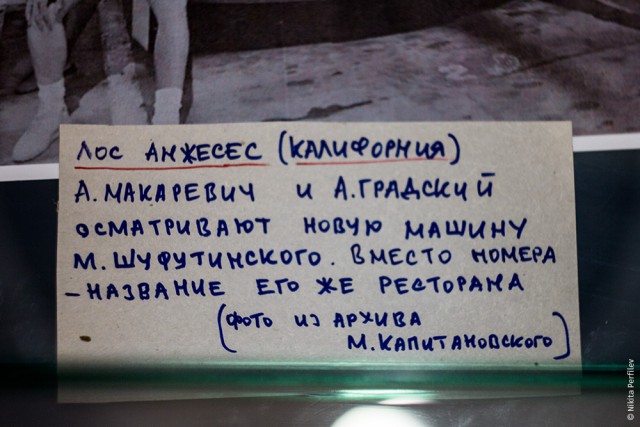 ЛОС АНЖЕСЕС (КАЛИФОРНИЯ)
А. МАКАРЕВИЧ И А. ГРАДСКИЙ
ОСМАТРИВАЮТ НОВУЮ МАШИНУ
М. ШУФУТИНСКОГО. ВМЕСТО НОМЕРА
– НАЗВАНИЕ ЕГО ЖЕ РЕСТОРАНА
(ФОТО ИЗ АРХИВА
М. КАПИТАНОВСКОГО)
© Nikita Perfilev